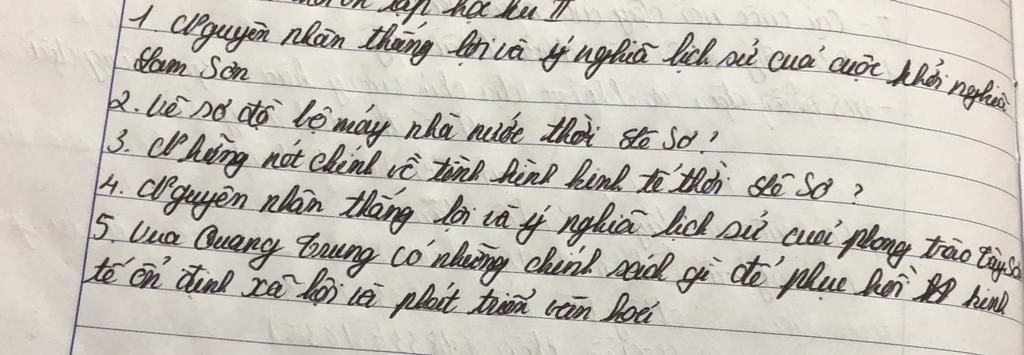 ôn tập học kì II
1. Nguyên nhân thắng lợi và ý nghĩa lịch sử của cuộc khởi nghĩa
Lam Sơn
2. Vẽ sơ đồ bộ máy nhà nước thời Lê Sơ?
3. Những nét chính về tình hình kinh tế thời Lê Sơ?
4. Nguyên nhân thắng lợi và ý nghĩa lịch sử của phong trào Tây Sơn
5. Vua Quang Trung có những chính sách gì để phục hồi kinh
tế ổn định xã hội và phát triển văn hoá